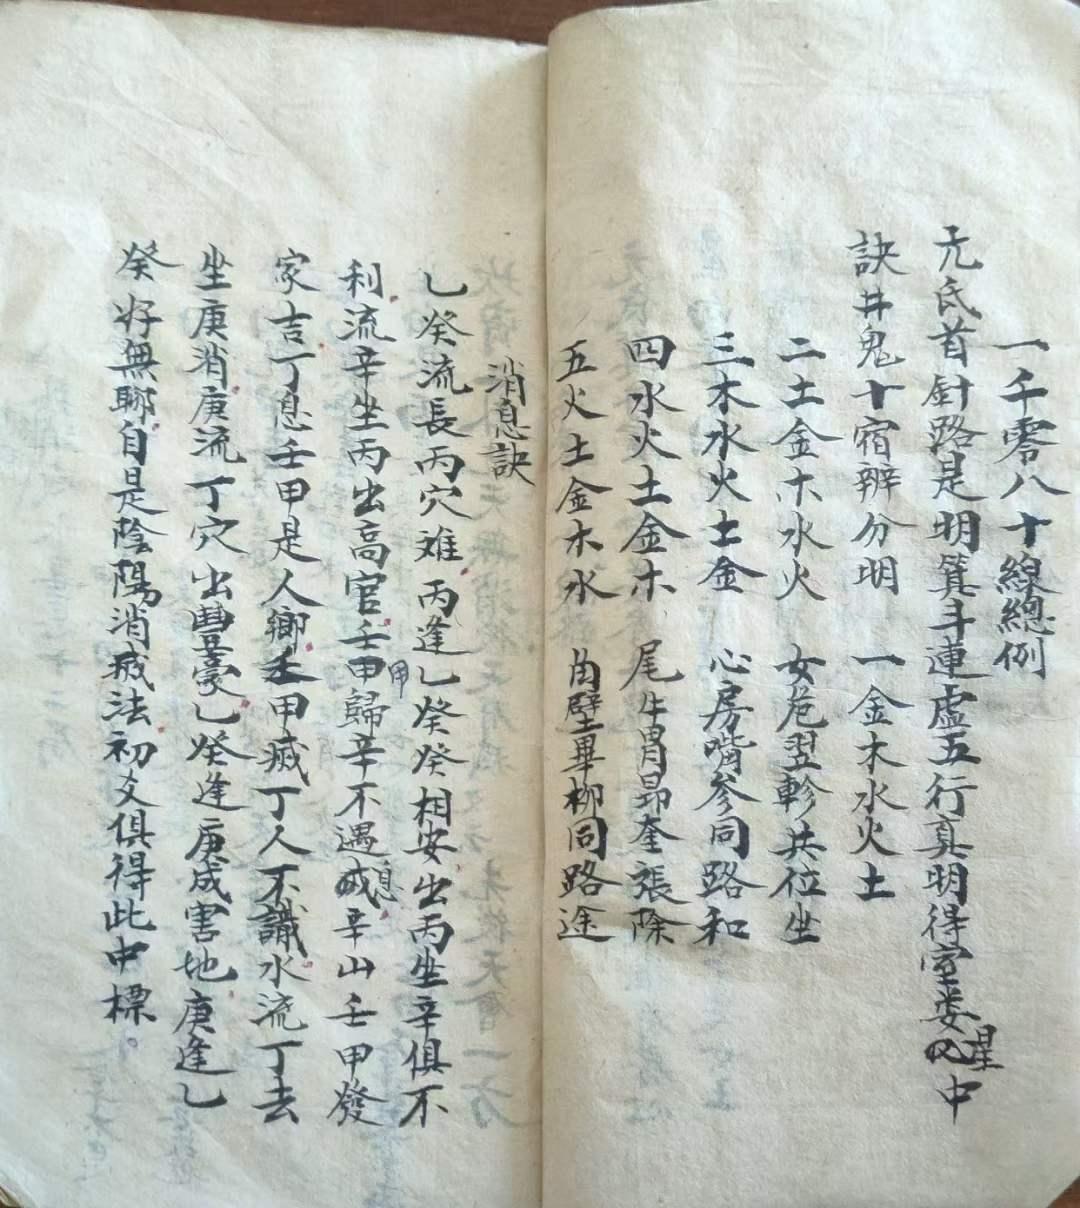 一千零八十線總例
亢氐首針路是明箕斗連虛五行真明得室娄星中
訣井鬼十宿辨分明　一金木水火土
二土金木水火　女危翌軫共位坐
三木水火土金　心房嘴參同路和
四水火土金木　尾牛胃昴奎張除
五火土金木水　角壁畢柳同路途
消息訣
乙癸流長丙穴难丙逢乙癸癸相安出丙坐辛俱不
利流辛坐丙出高官壬甲歸辛不遇息辛山壬甲發
家吉丁息壬甲是人鄉壬甲烕丁人不識水流丁去
坐庚消庚流丁穴出豊豪乙癸逢庚成害地庚逢乙
癸好無聊自是陰陽消烕法初爻俱得此中標。